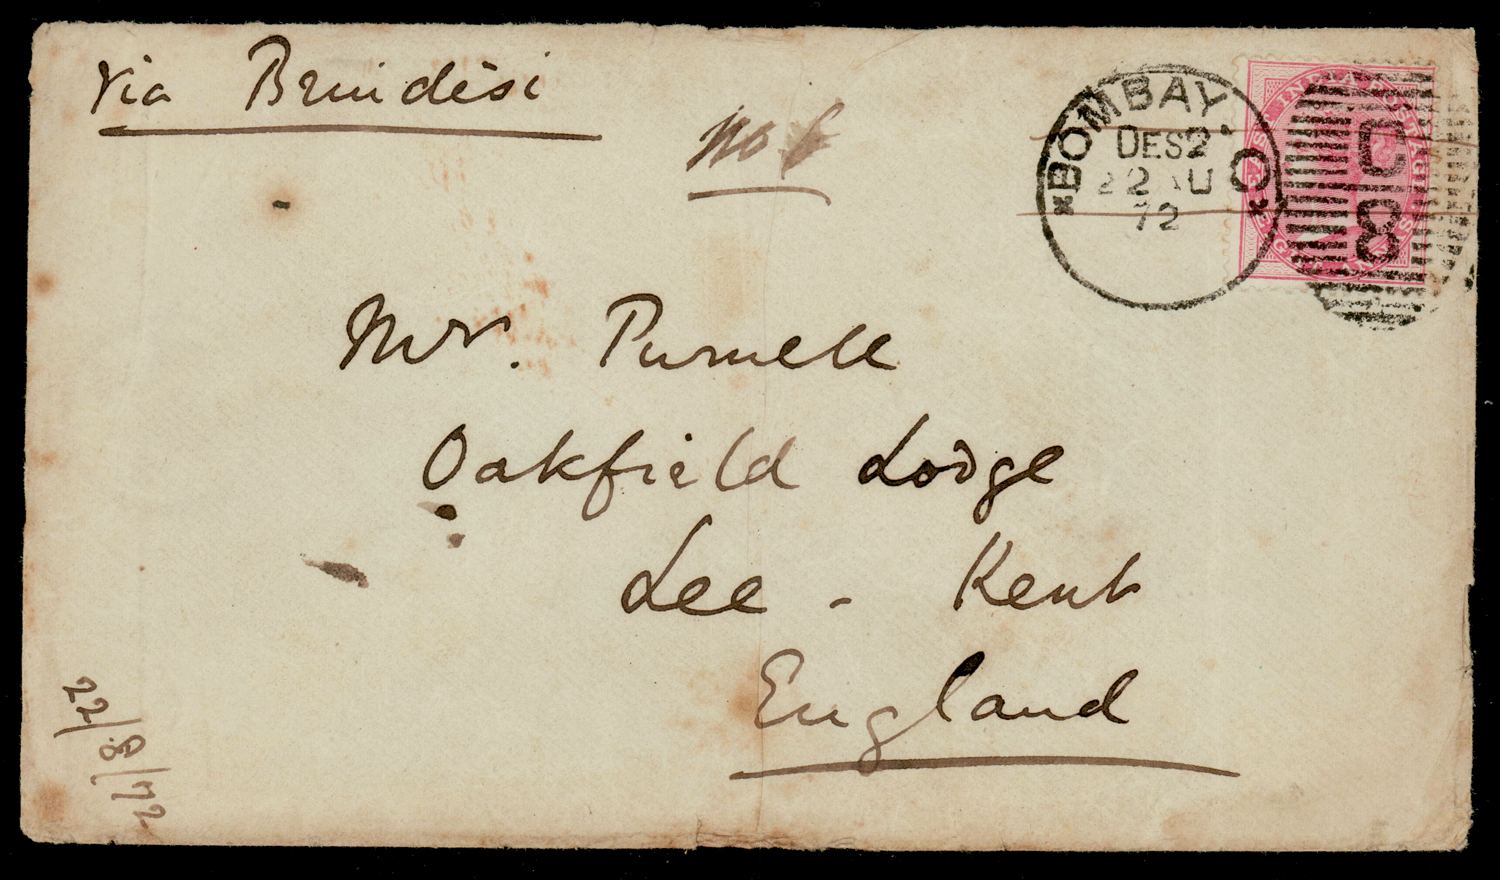 via Brindisi
No 6
BOMBAY
DES2
22 AU
72
C
8
EAST INDIA POSTAGE
EIGHT ANNAS
Mr. Purnell
Oakfield Lodge
Lee - Kent
England
22/8/72